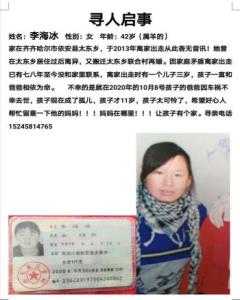 寻人启事
姓名：李海冰 性别：女 年龄：42岁（属羊的）
家在齐齐哈尔市依安县太东乡，于2013年离家出走从此杳无音讯！她曾
在太东乡居住过后离异，又搬迁太东乡联合村再婚。因家庭矛盾离家出走
已有七八年至今没和家里联系，离家出走时有一个儿子三岁，孩子一直和
爸爸相依为命。 不幸的是就在2020年的10月8号孩子的爸爸因车祸不
幸去世，孩子现在成了孤儿，孩子才11岁，孩子太可怜了，希望好心人
帮忙留意一下他的妈妈！！！妈妈在哪里！！！让孩子有个家。寻亲电话
15245814765
李海冰